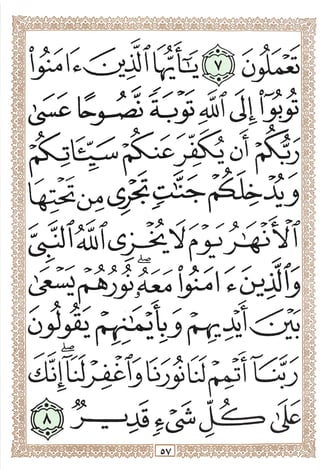 تَعْمَلُونَ ٧ يَٰٓأَيُّهَا ٱلَّذِينَ ءَامَنُوا۟
تُوبُوٓا۟ إِلَى ٱللَّهِ تَوْبَةً نَّصُوحًا عَسَىٰ
رَبُّكُمْ أَن يُكَفِّرَ عَنكُمْ سَيِّـَٔاتِكُمْ
وَيُدْخِلَكُمْ جَنَّٰتٍ تَجْرِى مِن تَحْتِهَا
ٱلْأَنْهَٰرُ يَوْمَ لَا يُخْزِى ٱللَّهُ ٱلنَّبِىَّ
وَٱلَّذِينَ ءَامَنُوا۟ مَعَهُۥۖ نُورُهُمْ يَسْعَىٰ
بَيْنَ أَيْدِيهِمْ وَبِأَيْمَٰنِهِمْ يَقُولُونَ
رَبَّنَآ أَتْمِمْ لَنَا نُورَنَا وَٱغْفِرْ لَنَآۖ إِنَّكَ
عَلَىٰ كُلِّ شَىْءٍ قَدِيرٌ ٨
٥٧